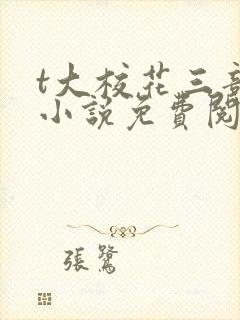 t大校花三部
小說免費閱
張鷺